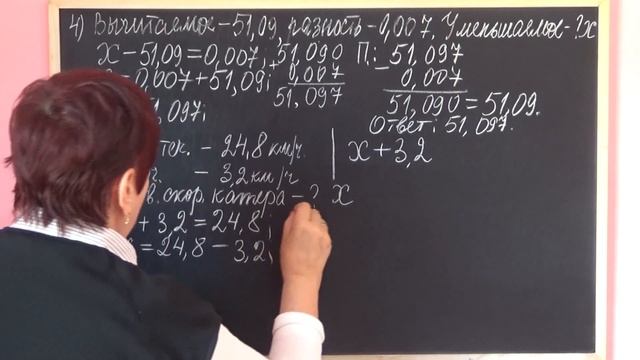 4) Вычитаемое – 51,09, разность – 0,007, Уменьшаемое – ? x
x – 51,09 = 0,007;
= 0,007 + 51,09;
,097;
+ 51,090
0,007
51,097
П: – 51,097
0,007
51,090 = 51,09.
Ответ: 51,097.
тек. – 24,8 км/ч.
– 3,2 км/ч
скор. катера – ? x
+ 3,2 = 24,8;
= 24,8 – 3,2;
x + 3,2